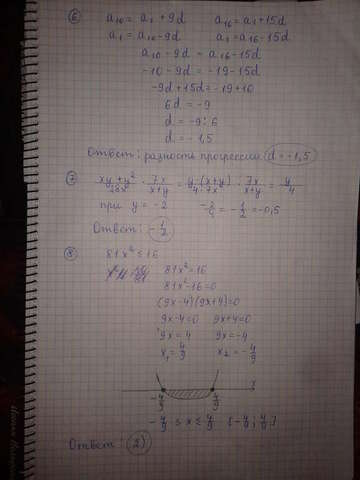 ⑥ a₁₀ = a₁ + 9d a₁₆ = a₁ + 15d
a₁ = a₁₀ - 9d a₁ = a₁₆ - 15d
a₁₀ - 9d = a₁₆ - 15d
-10 - 9d = -19 - 15d
-9d + 15d = -19 + 10
6d = -9
d = -9 : 6
d = -1,5
Ответ: разность прогрессии d = -1,5
⑦ xy + y² / 28x · 7x / x+y = y·(x+y) / 4·7x · 7x / x+y = y / 4
при y = -2 -2/4 = -1/2 = -0,5
Ответ: -1/2
⑧ 81x² ≤ 16
81x² = 16
81x² - 16 = 0
(9x - 4)(9x + 4) = 0
9x - 4 = 0 9x + 4 = 0
9x = 4 9x = -4
x₁ = 4/9 x₂ = -4/9
-4/9 4/9
-4/9 ≤ x ≤ 4/9 [-4/9; 4/9]
Ответ: 2)